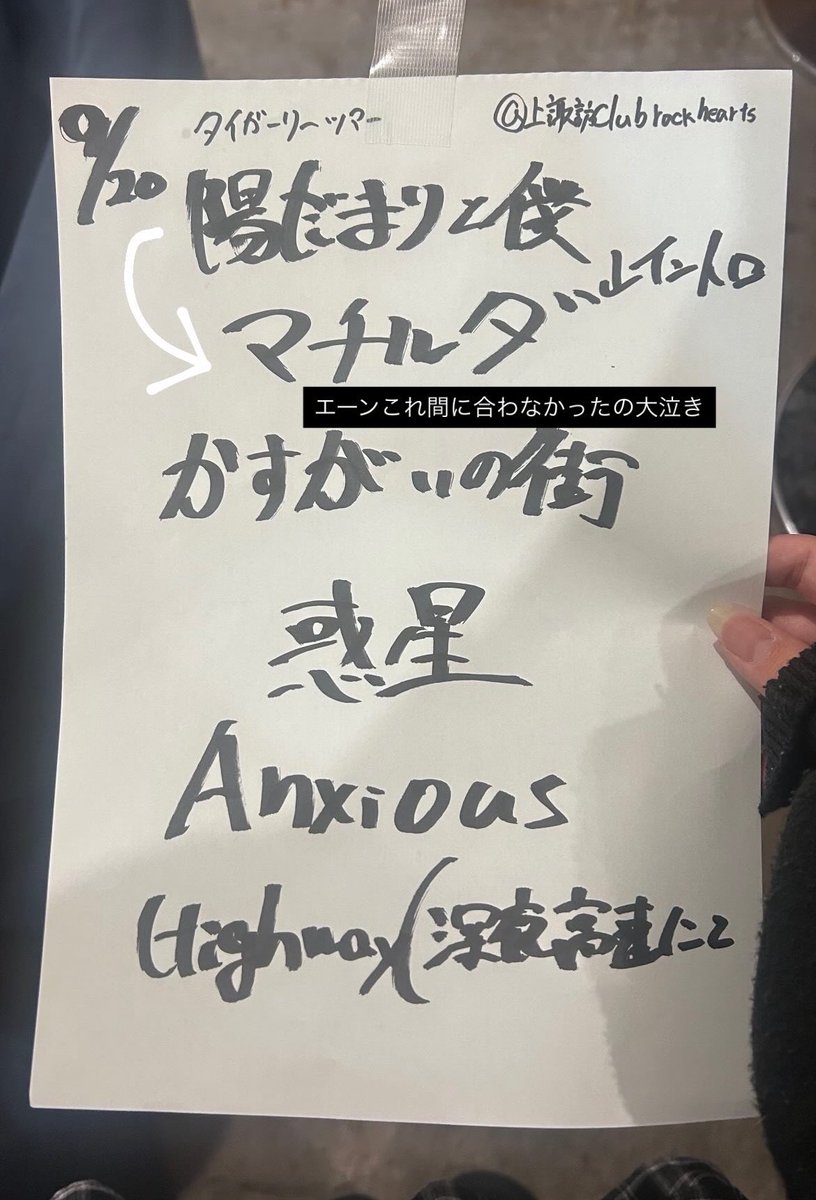 9/20
タイガーリーツマー
@上諏訪Club rock hearts
陽だまりと僕
レイントロ
マチルダ
エーンこれ間に合わなかったの大泣き
かすがいの街
惑星
Anxious
Highway(深夜高速にて